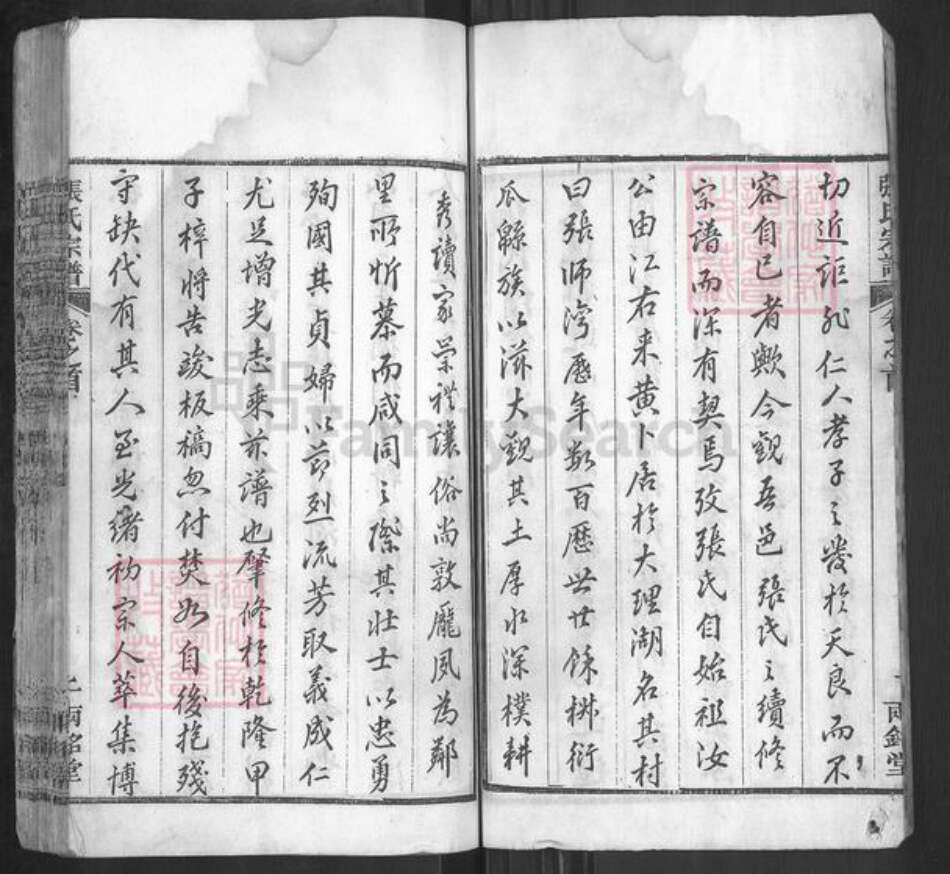 切近詎非仁人孝子之發於天良而不
容自已者歟今觀吾邑張氏之續修
宗譜而深有契焉攷張氏自始祖汝
公由江右来黄卜居於大理湖名其村
曰張師灣歷年數百歷世廿餘椒衍
瓜緜族以滋大觀其土厚水深樸耕
秀讀家崇禮讓俗尚敦龐夙為鄰
里所忻慕而咸同之際其壯士以忠勇
殉國其貞婦以節烈流芳取義成仁
尤足增光志乘茲譜也肇修於乾隆甲
子梓將告竣板稿忽付焚如自後抱殘
守缺代有其人至光緒初宗人萃集博
張氏宗譜
卷之首
上兩銘堂
張氏宗譜
卷之首
兩銘堂
FamilySearch